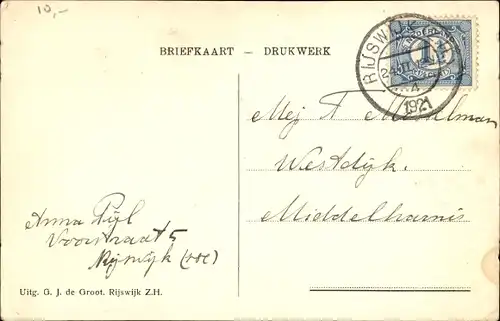 10,-
BRIEFKAART – DRUKWERK
NEDERLAND
RIJSWIJK
1921
Mej T
Westdijk.
Middelharnis
Anna Pijl
Voorstraat 5
Rijswijk
Uitg. G. J. de Groot. Rijswijk Z.H.